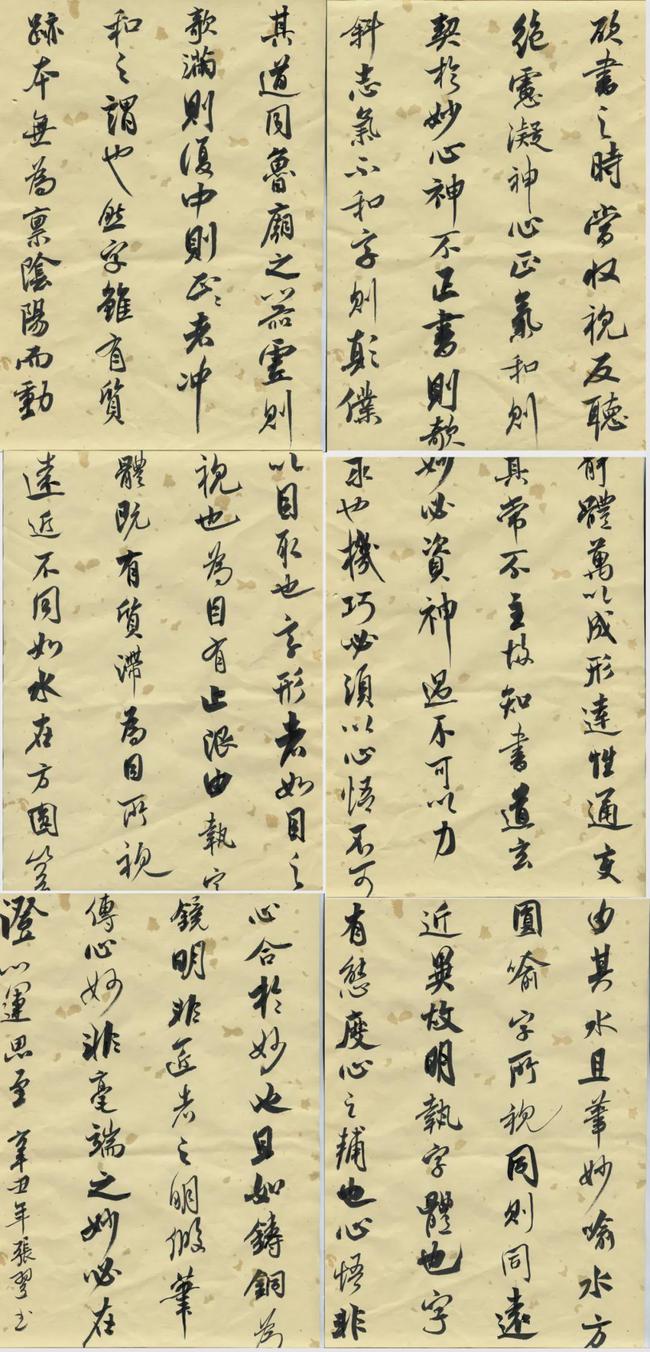 欲書之時當收視反聽
絕慮凝神心正氣和則
契於妙心神不正書則欹
斜志氣不和字則顛仆
其道同魯廟之器虛則
欹滿則復中則正正者沖
和之謂也然字雖有質
跡本無為稟陰陽而動
體萬以成形達性通變
其常不主故知書道玄
妙必資神遇不可以力
求也機巧必須以心悟不可
以目取也字形者如目之
視也為目有止限由執字
體既有質滯為目所視
遠近不同如水在方圓豈
由其水且筆妙喻水方
圓喻字所視同則同遠
近異故明執字體也字
有態度心之輔也心悟非
心合於妙也且如鑄銅為
鏡明非匠者之明假筆
傳心妙非毫端之妙必在
澄心運思至 辛丑年張翼書